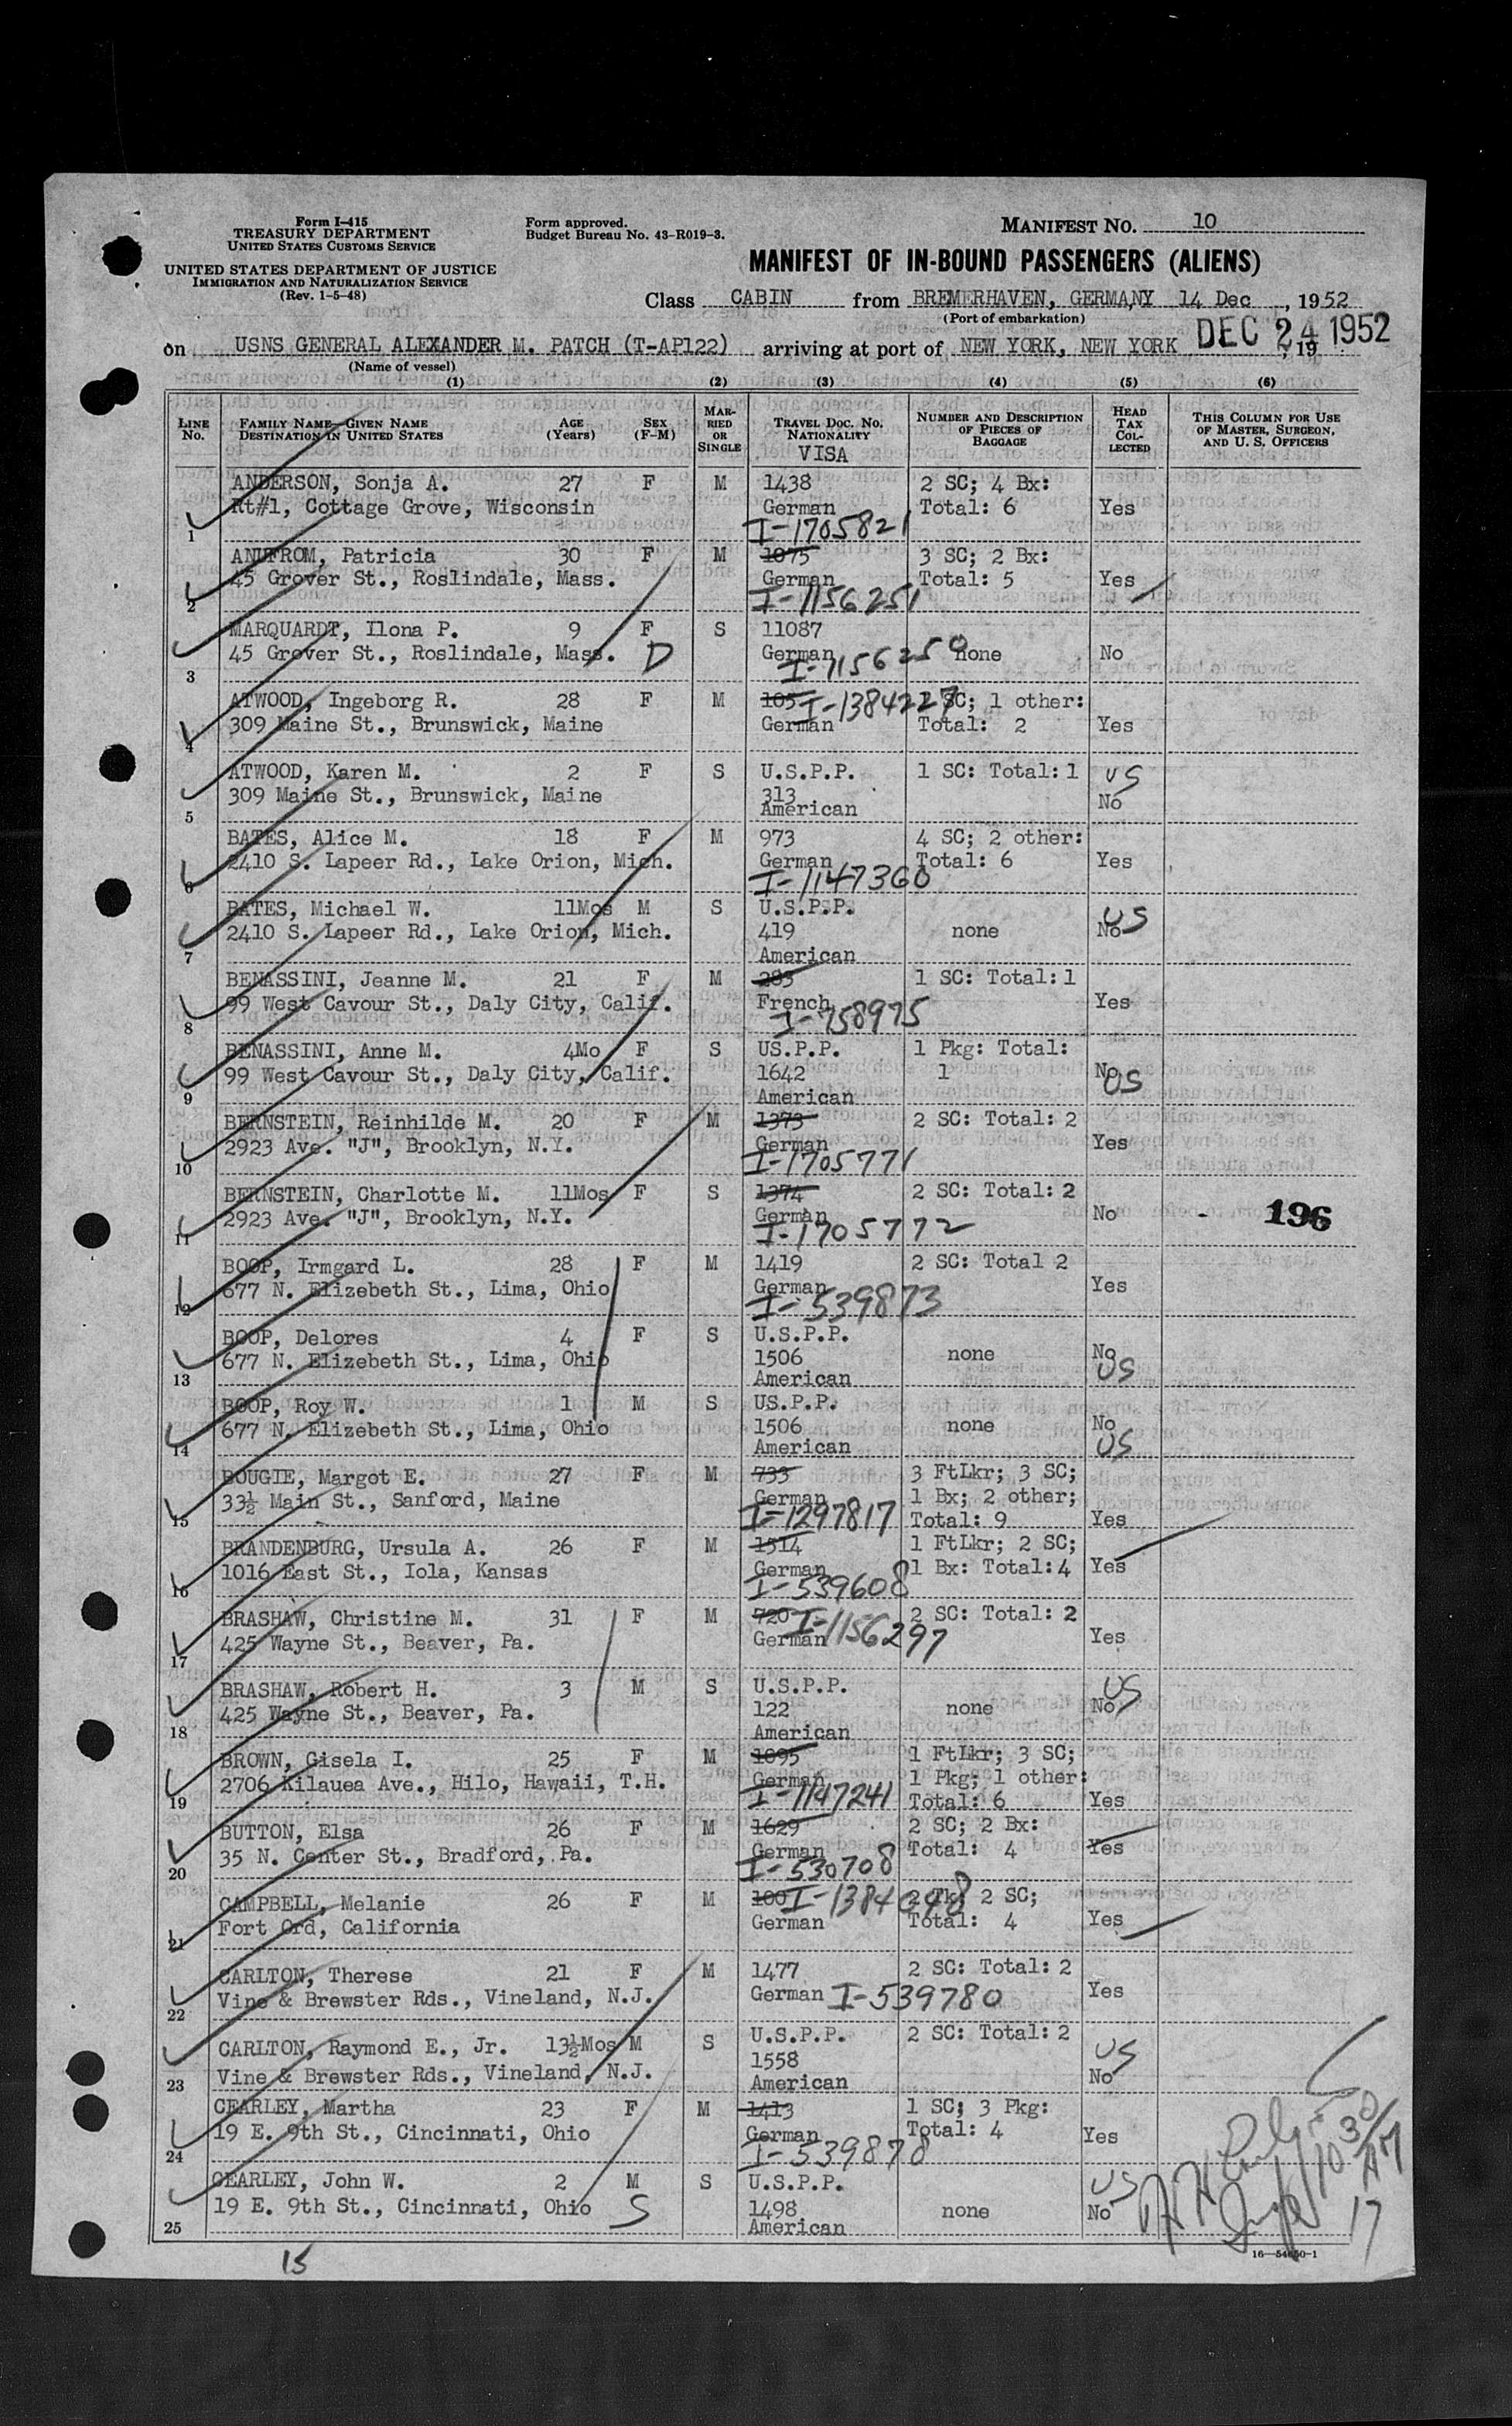 Form I-415
TREASURY DEPARTMENT
UNITED STATES CUSTOMS SERVICE
UNITED STATES DEPARTMENT OF JUSTICE
IMMIGRATION AND NATURALIZATION SERVICE
(Rev. 1-5-48)
Form approved.
Budget Bureau No. 43-R019-3.
MANIFEST NO. 10
MANIFEST OF IN-BOUND PASSENGERS (ALIENS)
Class CABIN from BREMERHAVEN, GERMANY 14 Dec, 1952
(Port of embarkation)
on USNS GENERAL ALEXANDER M. PATCH (T-AP122) arriving at port of NEW YORK, NEW YORK DEC 24 1952, 19
(Name of vessel)
(1) (2) (3) (4) (5) (6)
LINE No. FAMILY NAME—GIVEN NAME DESTINATION IN UNITED STATES AGE (Years) SEX (F-M) MARRIED OR SINGLE TRAVEL DOC. NO. NATIONALITY VISA NUMBER AND DESCRIPTION OF PIECES OF BAGGAGE HEAD TAX COLLECTED THIS COLUMN FOR USE OF MASTER, SURGEON, AND U. S. OFFICERS
ANDERSON, Sonja A. 27 F M 1438 2 SC; 4 Bx:
Rt#1, Cottage Grove, Wisconsin German Total: 6 Yes
1 I-1705821
ANUFROM, Patricia 30 F M 1075 3 SC; 2 Bx:
45 Grover St., Roslindale, Mass. German Total: 5 Yes
2 I-1156251
MARQUARDT, Ilona P. 9 F S 11087
45 Grover St., Roslindale, Mass. D German none No
3 I-1156250
ATWOOD, Ingeborg R. 28 F M 105 I-1384227 SC; 1 other:
309 Maine St., Brunswick, Maine German Total: 2 Yes
4
ATWOOD, Karen M. 2 F S U.S.P.P. 1 SC: Total: 1 US
309 Maine St., Brunswick, Maine 313 No
5 American
BATES, Alice M. 18 F M 973 4 SC; 2 other:
2410 S. Lapeer Rd., Lake Orion, Mich. German Total: 6 Yes
6 I-1147360
BATES, Michael W. 11Mos M S U.S.P.P. US
2410 S. Lapeer Rd., Lake Orion, Mich. 419 none No
7 American
BENASSINI, Jeanne M. 21 F M 283 1 SC: Total: 1
99 West Cavour St., Daly City, Calif. French Yes
8 I-758975
BENASSINI, Anne M. 4Mo F S US.P.P. 1 Pkg: Total:
99 West Cavour St., Daly City, Calif. 1642 1 No US
9 American
BERNSTEIN, Reinhilde M. 20 F M 1373 2 SC: Total: 2
2923 Ave. "J", Brooklyn, N.Y. German Yes
10 I-1705771
BERNSTEIN, Charlotte M. 11Mos F S 1374 2 SC: Total: 2
2923 Ave. "J", Brooklyn, N.Y. German No - 196
11 I-1705772
BOOP, Irmgard L. 28 F M 1419 2 SC: Total 2
677 N. Elizebeth St., Lima, Ohio German Yes
12 I-539873
BOOP, Delores 4 F S U.S.P.P.
677 N. Elizebeth St., Lima, Ohio 1506 none No US
13 American
BOOP, Roy W. 1 M S US.P.P.
677 N. Elizebeth St., Lima, Ohio 1506 none No US
14 American
BOUGIE, Margot E. 27 F M 733 3 FtLkr; 3 SC;
33½ Main St., Sanford, Maine German 1 Bx; 2 other;
15 I-1297817 Total: 9 Yes
BRANDENBURG, Ursula A. 26 F M 1514 1 FtLkr; 2 SC;
1016 East St., Iola, Kansas German 1 Bx: Total: 4 Yes
16 I-539608
BRASHAW, Christine M. 31 F M 720 I-1156297 2 SC: Total: 2
425 Wayne St., Beaver, Pa. German Yes
17
BRASHAW, Robert H. 3 M S U.S.P.P. US
425 Wayne St., Beaver, Pa. 122 none No
18 American
BROWN, Gisela I. 25 F M 1095 1 FtLkr; 3 SC;
2706 Kilauea Ave., Hilo, Hawaii, T.H. German 1 Pkg; 1 other:
19 I-1147241 Total: 6 Yes
BUTTON, Elsa 26 F M 1629 2 SC; 2 Bx:
35 N. Center St., Bradford, Pa. German Total: 4 Yes
20 I-530708
CAMPBELL, Melanie 26 F M 100 2 SC;
Fort Ord, California German Total: 4 Yes
21
CARLTON, Therese 21 F M 1477 2 SC: Total: 2
Vine & Brewster Rds., Vineland, N.J. German I-539780 Yes
22
CARLTON, Raymond E., Jr. 13½Mos M S U.S.P.P. 2 SC: Total: 2 US
Vine & Brewster Rds., Vineland, N.J. 1558 No
23 American
CEARLEY, Martha 23 F M 1413 1 SC; 3 Pkg:
19 E. 9th St., Cincinnati, Ohio German Total: 4 Yes
24 I-539878
CEARLEY, John W. 2 M S U.S.P.P. US
19 E. 9th St., Cincinnati, Ohio S 1498 none No
25 American
16—54650-1
15
17